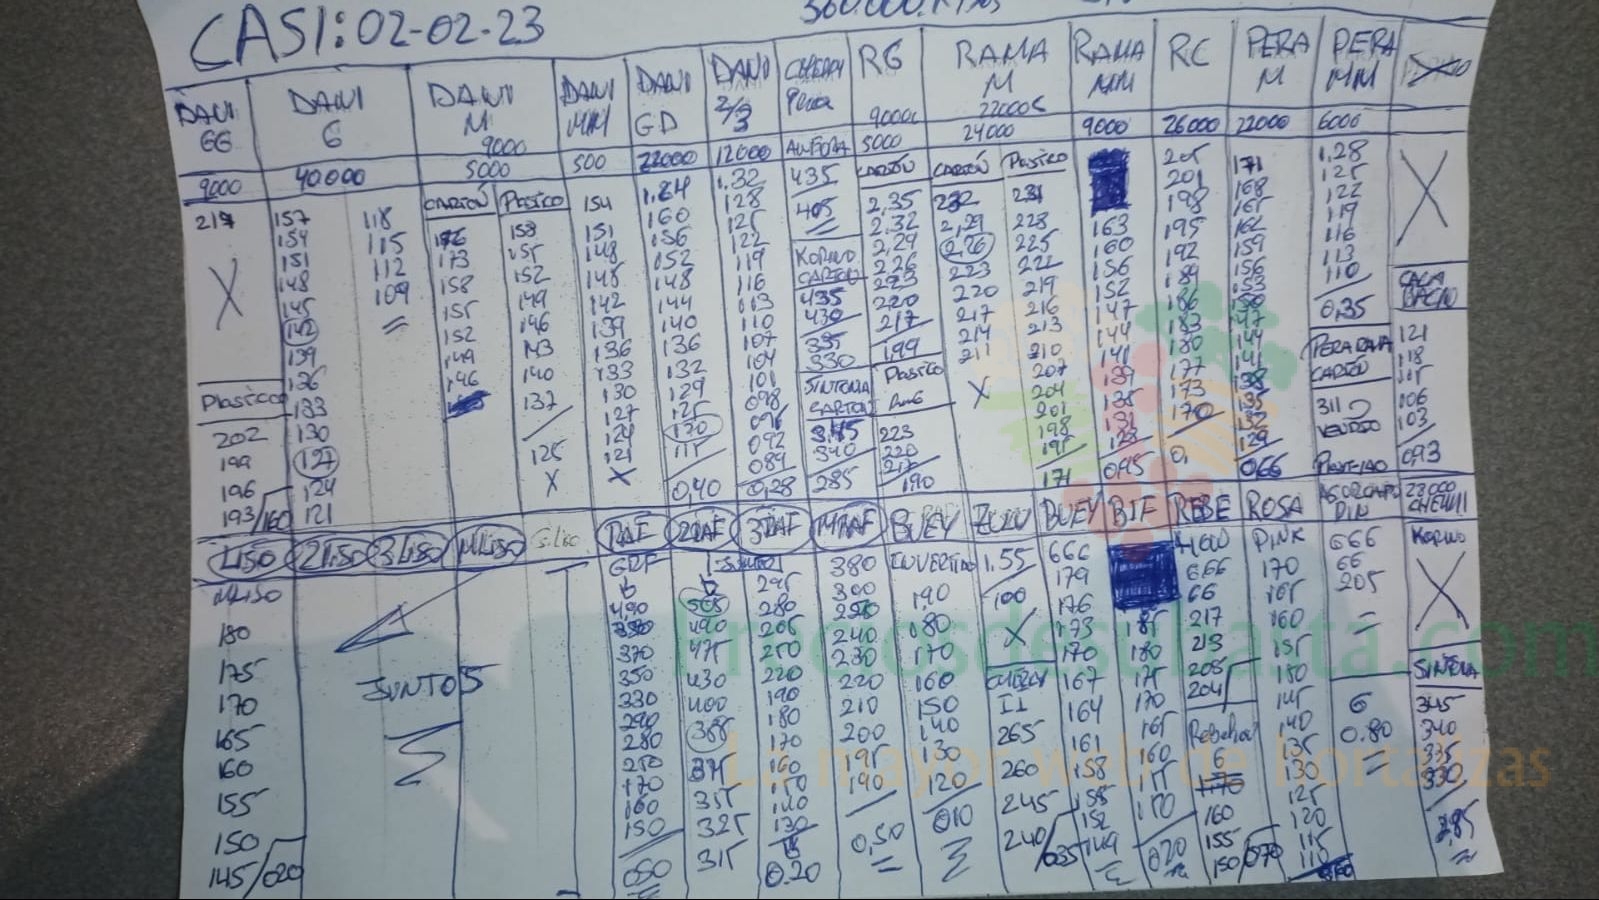 CASI: 02-02-23
360.000. Kilos
DANI GG
DANI G
DANI M
DANI MM
DANI GD
DANI 2/3
CHERRY Pera
RG
RAMA M
RAMA MM
RC
PERA M
PERA MM
9000
40000
9000
5000
500
22000
12000
ALMERIA
9000c
5000
22000c
24000
9000
26000
22000
6000
217
X
Plastico
202
199
196
193/160
157
154
151
148
145
142
139
136
133
130
127
124
121
118
115
112
109
CARTÓN
176
173
158
155
152
149
146
Plastico
158
155
152
149
146
143
140
137
125
X
154
151
148
145
142
139
136
133
130
127
124
121
X
1.64
160
156
152
148
144
140
136
132
129
125
120
115
0,40
1.32
128
125
122
119
116
113
110
107
104
101
098
096
092
089
0,28
435
405
KOPINO CARTON
435
430
395
330
SINTONIA CARTON
3.45
340
285
CARTÓN
2,35
2,32
2,29
2,26
223
220
217
199
Plastico
223
220
217
190
CARTÓN
232
2,29
2,26
223
220
217
214
211
X
Plastico
231
228
225
222
219
216
213
210
207
204
201
198
195
171
163
160
156
152
147
144
141
139
135
131
128
0,45
205
201
198
195
192
189
186
183
180
177
173
170
0,
171
168
165
162
159
156
153
150
147
144
141
138
135
132
129
0,66
1,28
125
122
119
116
113
110
0,35
PERA RAMA CARTÓN
311
VENDIDO
X
CALA BACIN
121
118
115
106
103
0,93
LISO
2LISO
3LISO
MLISO
S.Liso
RAF
2RAF
3RAF
MRAF
BUEY
ZULU
BUEY
BIF
REBE
ROSA
MLISO
180
175
170
165
160
155
150
145/020
JUNTOS
GRF
490
380
370
350
330
290
280
250
170
160
150
050
JUNTO
505
490
475
430
400
388
375
355
325
315
295
280
265
250
220
190
180
170
160
150
140
130
0.20
380
300
220
240
230
220
210
200
195
190
0,50
INVERTIDO
190
180
170
160
150
140
130
120
010
1.55
100
X
CHERRY II
265
260
245
240/035
666
179
176
173
170
167
164
161
158
155
152
149
185
180
175
170
165
160
155
150
020
666
66
217
213
208
204
6
170
160
155
150/070
PINK
170
165
160
155
150
145
140
135
130
125
120
115
110
666
66
205
6
0.80
KOPINO
X
SINTONIA
345
340
335
330
2,85
Preciosdesubasta.com
La mayor web de hortalizas